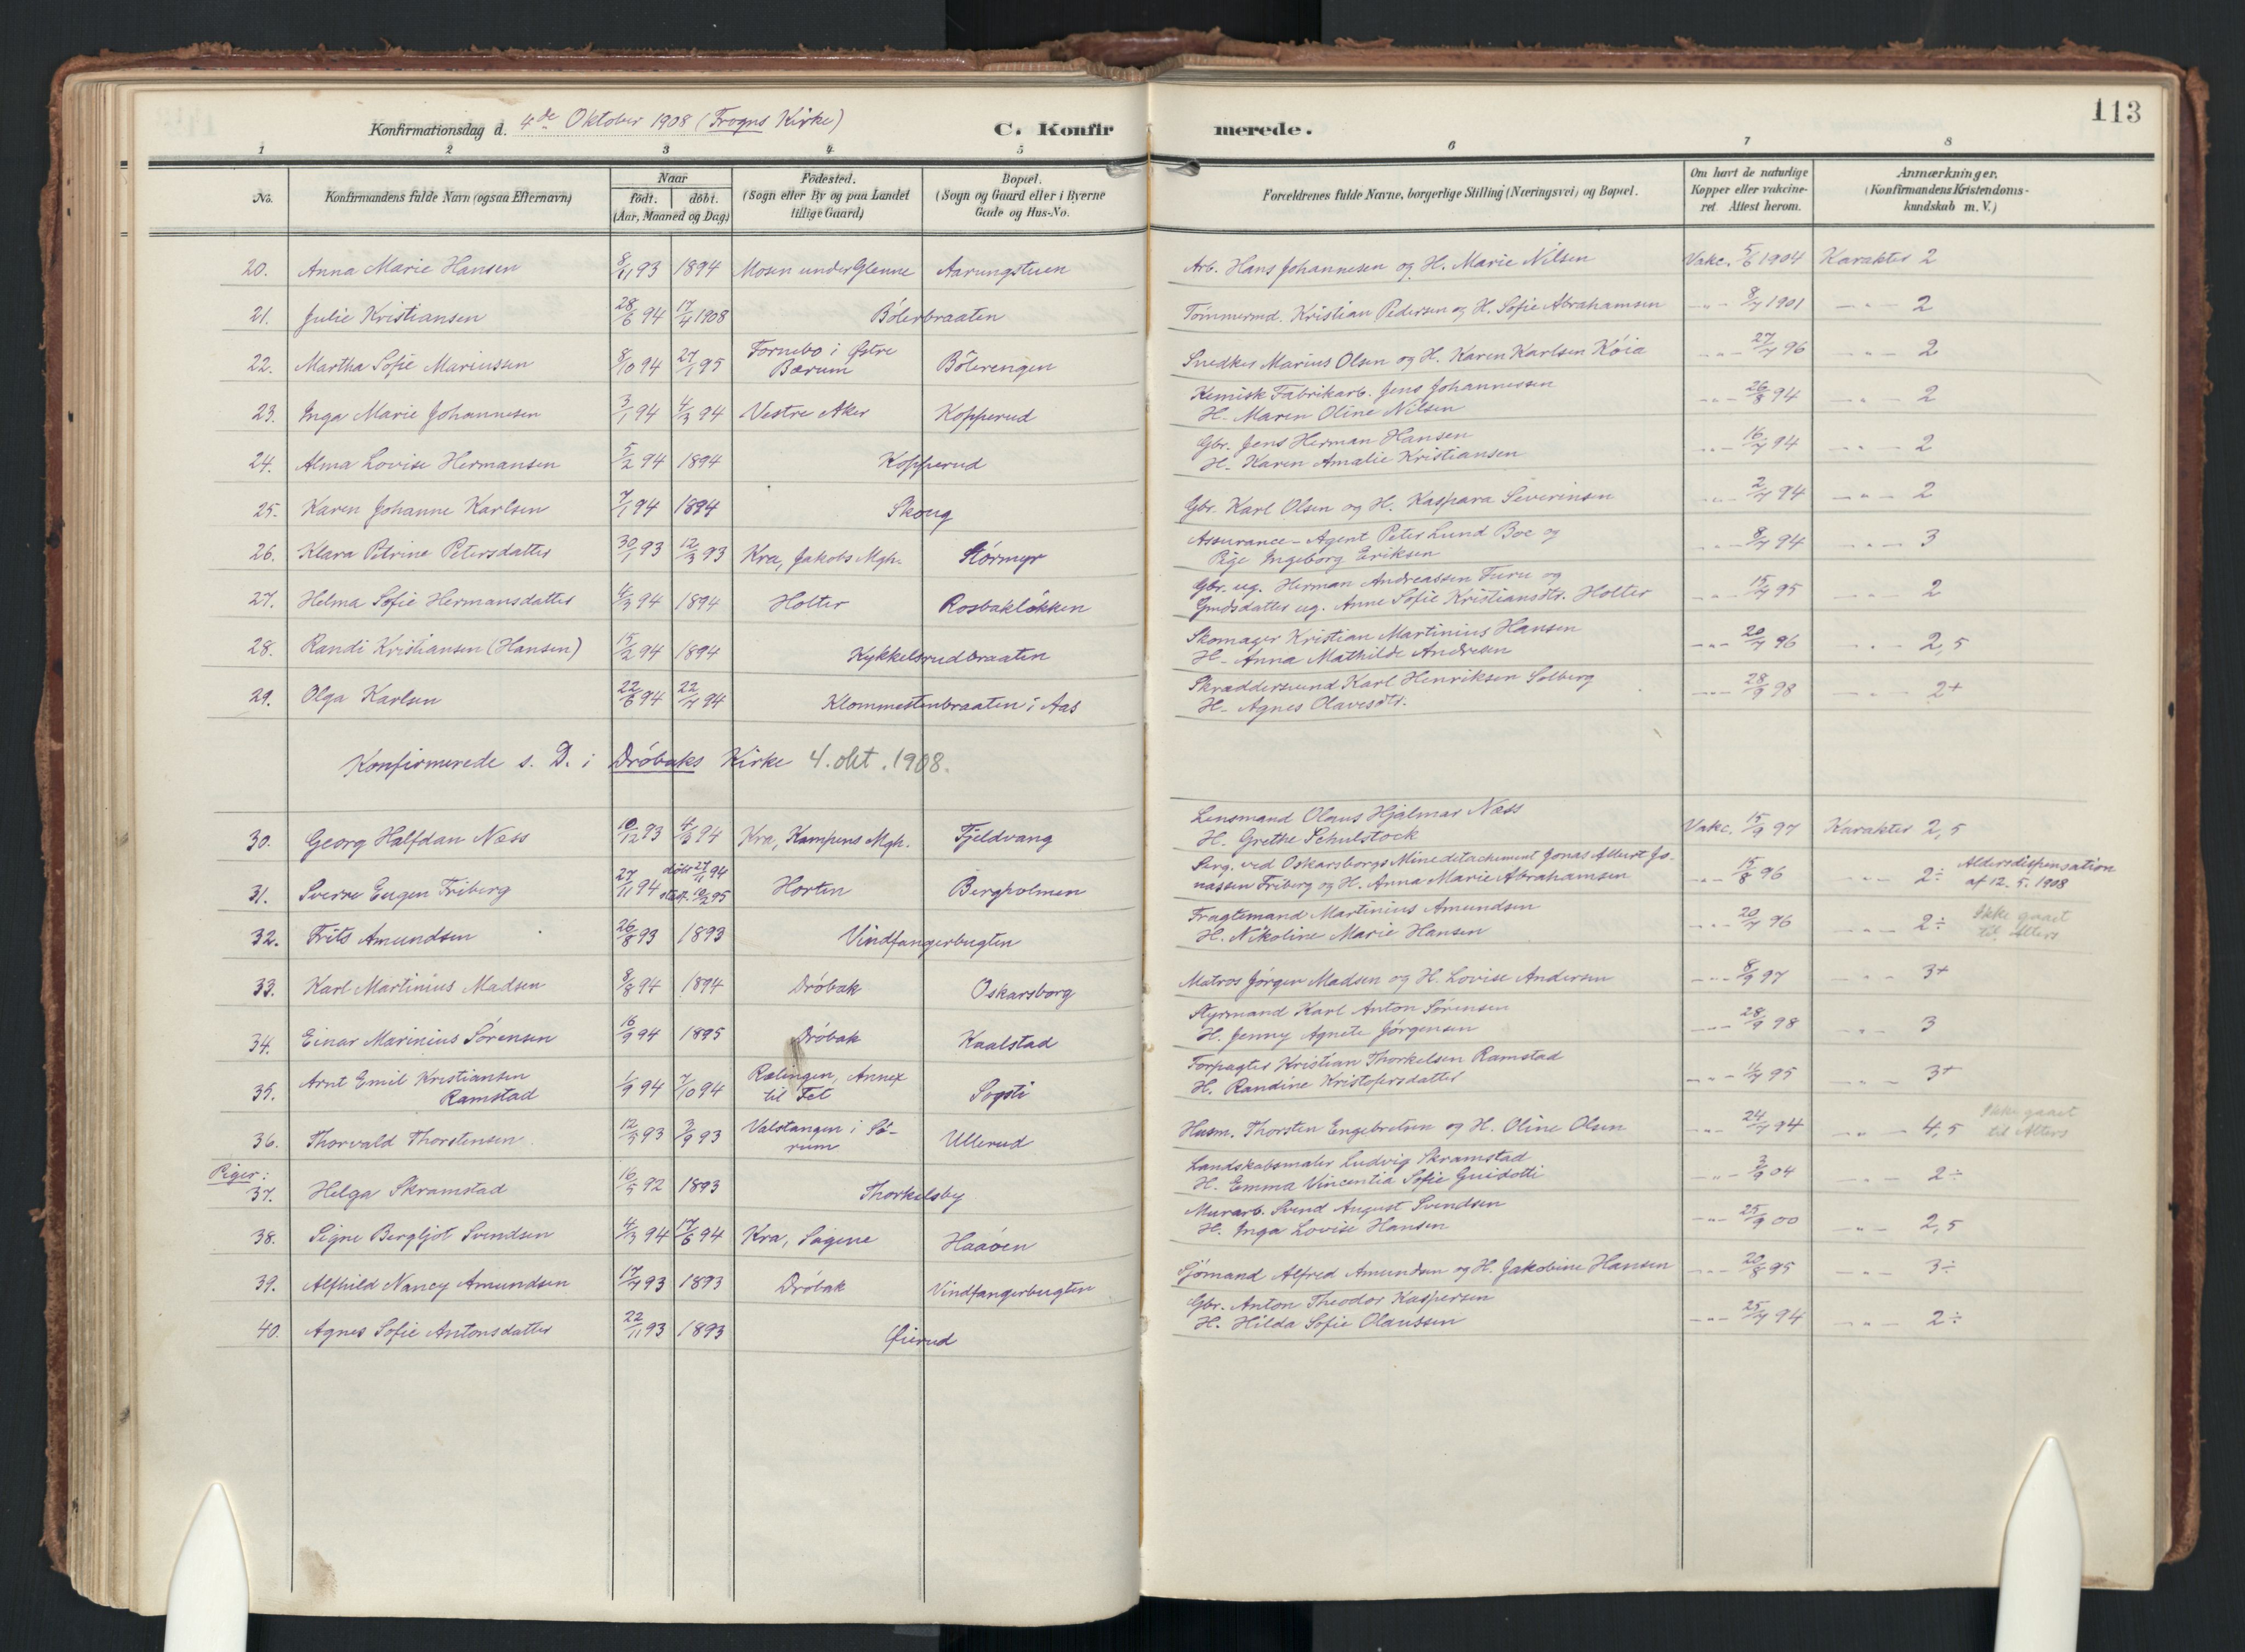 113
Konfirmationsdag d. 4de Oktober 1908 (Frogns Kirke) C. Konfirmerede.
1 2 3 4 5 6 7 8
No. Konfirmandens fulde Navn (ogsaa Efternavn) Naar født. døbt. (Aar, Maaned og Dag) Fødested. (Sogn eller By og paa Landet tillige Gaard) Bopæl. (Sogn og Gaard eller i Byerne Gade og Hus-No. Forældrenes fulde Navne, borgerlige Stilling (Næringsvei) og Bopæl. Om havt de naturlige Kopper eller vakcineret. Attest herom. Anmærkninger, (Konfirmandens Kristendomskundskab m. V.)
20. Anna Marie Hansen 8/11 93 1894 Mosen under Glenne Aarungstuen Arb. Hans Johannesen og H. Marie Nilsen Vakc. 5/6 1904 Karakter 2
21. Julie Kristiansen 28/6 94 17/4 1908 Bölerbraaten Tömmermd. Kristian Pedersen og H. Sofie Abrahamsen -"- 8/7 1901 -"- 2
22. Martha Sofie Mariussen 8/10 94 27/1 95 Fornebo i Østre Bærum Bölerengen Snedker Marius Olsen og H. Karen Karlsen Köia -"- 27/7 96 -"- 2
23. Inga Marie Johannesen 3/1 94 4/3 94 Vestre Aker Kopperud Kemisk Fabrikarb. Jens Johannessen
H. Maren Oline Nilsen -"- 26/8 94 -"- 2
24. Alma Lovise Hermansen 5/2 94 1894 Kopperud Gbr. Jens Herman Hansen
H. Karen Amalie Kristiansen -"- 16/7 94 -"- 2
25. Karen Johanne Karlsen 7/1 94 1894 Skoug Gbr. Karl Olsen og H. Kaspara Severinsen -"- 2/7 94 -"- 2
26. Klara Petrine Petersdatter 30/1 93 12/3 93 Kra, Jakobs Mgh. Störmyr Assurance-Agent Peter Lund Boe og
Pige Ingeborg Eriksen -"- 8/7 94 -"- 3
27. Helma Sofie Hermansdatter 4/3 94 1894 Holter Rosbaklökken Gbr. ug. Herman Andreassen Furu og
Gmdsdatter ug. Anne Sofie Kristiansdtr. Holter -"- 15/7 95 -"- 2
28. Randi Kristiansen (Hansen) 15/2 94 1894 Kykkelsrudbraaten Skomager Kristian Martinius Hansen
H. Anna Mathilde Andresen -"- 20/7 96 -"- 2,5
29. Olga Karlsen 22/6 94 22/7 94 Klommestenbraaten i Aas Skræddersvend Karl Henriksen Solberg
H. Agnes Olavesdtr. -"- 28/9 98 -"- 2+
Konfirmerede s. D. i Dröbaks Kirke 4. okt. 1908.
30. Georg Halfdan Næss 10/12 93 4/3 94 Kra, Kampens Mgh. Fjeldvang Lensmand Olaus Hjalmar Næss
H. Grethe Schulstock Vakc. 15/9 97 Karakter 2,5
31. Sverre Eugen Friberg 27/11 94 döbt 27/11 94 stadf. 10/2 95 Horten Bergholmen Serg. ved Oskarsborgs Minedetachement Jonas Albert Jo-
nassen Friberg og H. Anna Marie Abrahamsen -"- 15/8 96 -"- 2÷ Aldersdispensation
af 12. 5. 1908
32. Frits Amundsen 26/8 93 1893 Vindfangerbugten Fragtemand Martinius Amundsen
H. Nikoline Marie Hansen -"- 20/7 96 -"- 2÷ Ikke gaaet
til Alters
33. Karl Martinius Madsen 8/8 94 1894 Dröbak Oskarsborg Matros Jörgen Madsen og H. Lovise Andersen -"- 8/9 97 -"- 3+
34. Einar Marinius Sörensen 16/9 94 1895 Dröbak Kaalstad Styrmand Karl Anton Sörensen
H. Jenny Agnete Jörgensen -"- 28/9 98 -"- 3
35. Arnt Emil Kristiansen
Ramstad 1/9 94 7/10 94 Rælingen, Annex
til Fet Sogsti Forpagter Kristian Thorkelsen Ramstad
H. Randine Kristofersdatter -"- 11/7 95 -"- 3+
36. Thorvald Thorstensen 12/5 93 3/9 93 Valstangen i Sö-
rum Ullerud Husm. Thorsten Engebretsen og H. Oline Olsen -"- 24/7 94 -"- 4,5 Ikke gaaet
til Alters
Piger:
37. Helga Skramstad 16/5 92 1893 Thorkelsby Landskabsmaler Ludvig Skramstad
H. Emma Vincentia Sofie Guidotti -"- 3/9 04 -"- 2÷
38. Signe Bergljot Svendsen 4/3 94 17/6 94 Kra, Sagene Haaöen Murarb. Svend August Svendsen
H. Inga Lovise Hansen -"- 25/9 00 -"- 2,5
39. Alfhild Nancy Amundsen 17/7 93 1893 Dröbak Vindfangerbugten Sjömand Alfred Amundsen og H. Jakobine Hansen -"- 20/8 95 -"- 3÷
40. Agnes Sofie Antonsdatter 22/11 93 1893 Øierud Gbr. Anton Theodor Kaspersen
H. Hilda Sofie Olaussen -"- 25/7 94 -"- 2÷